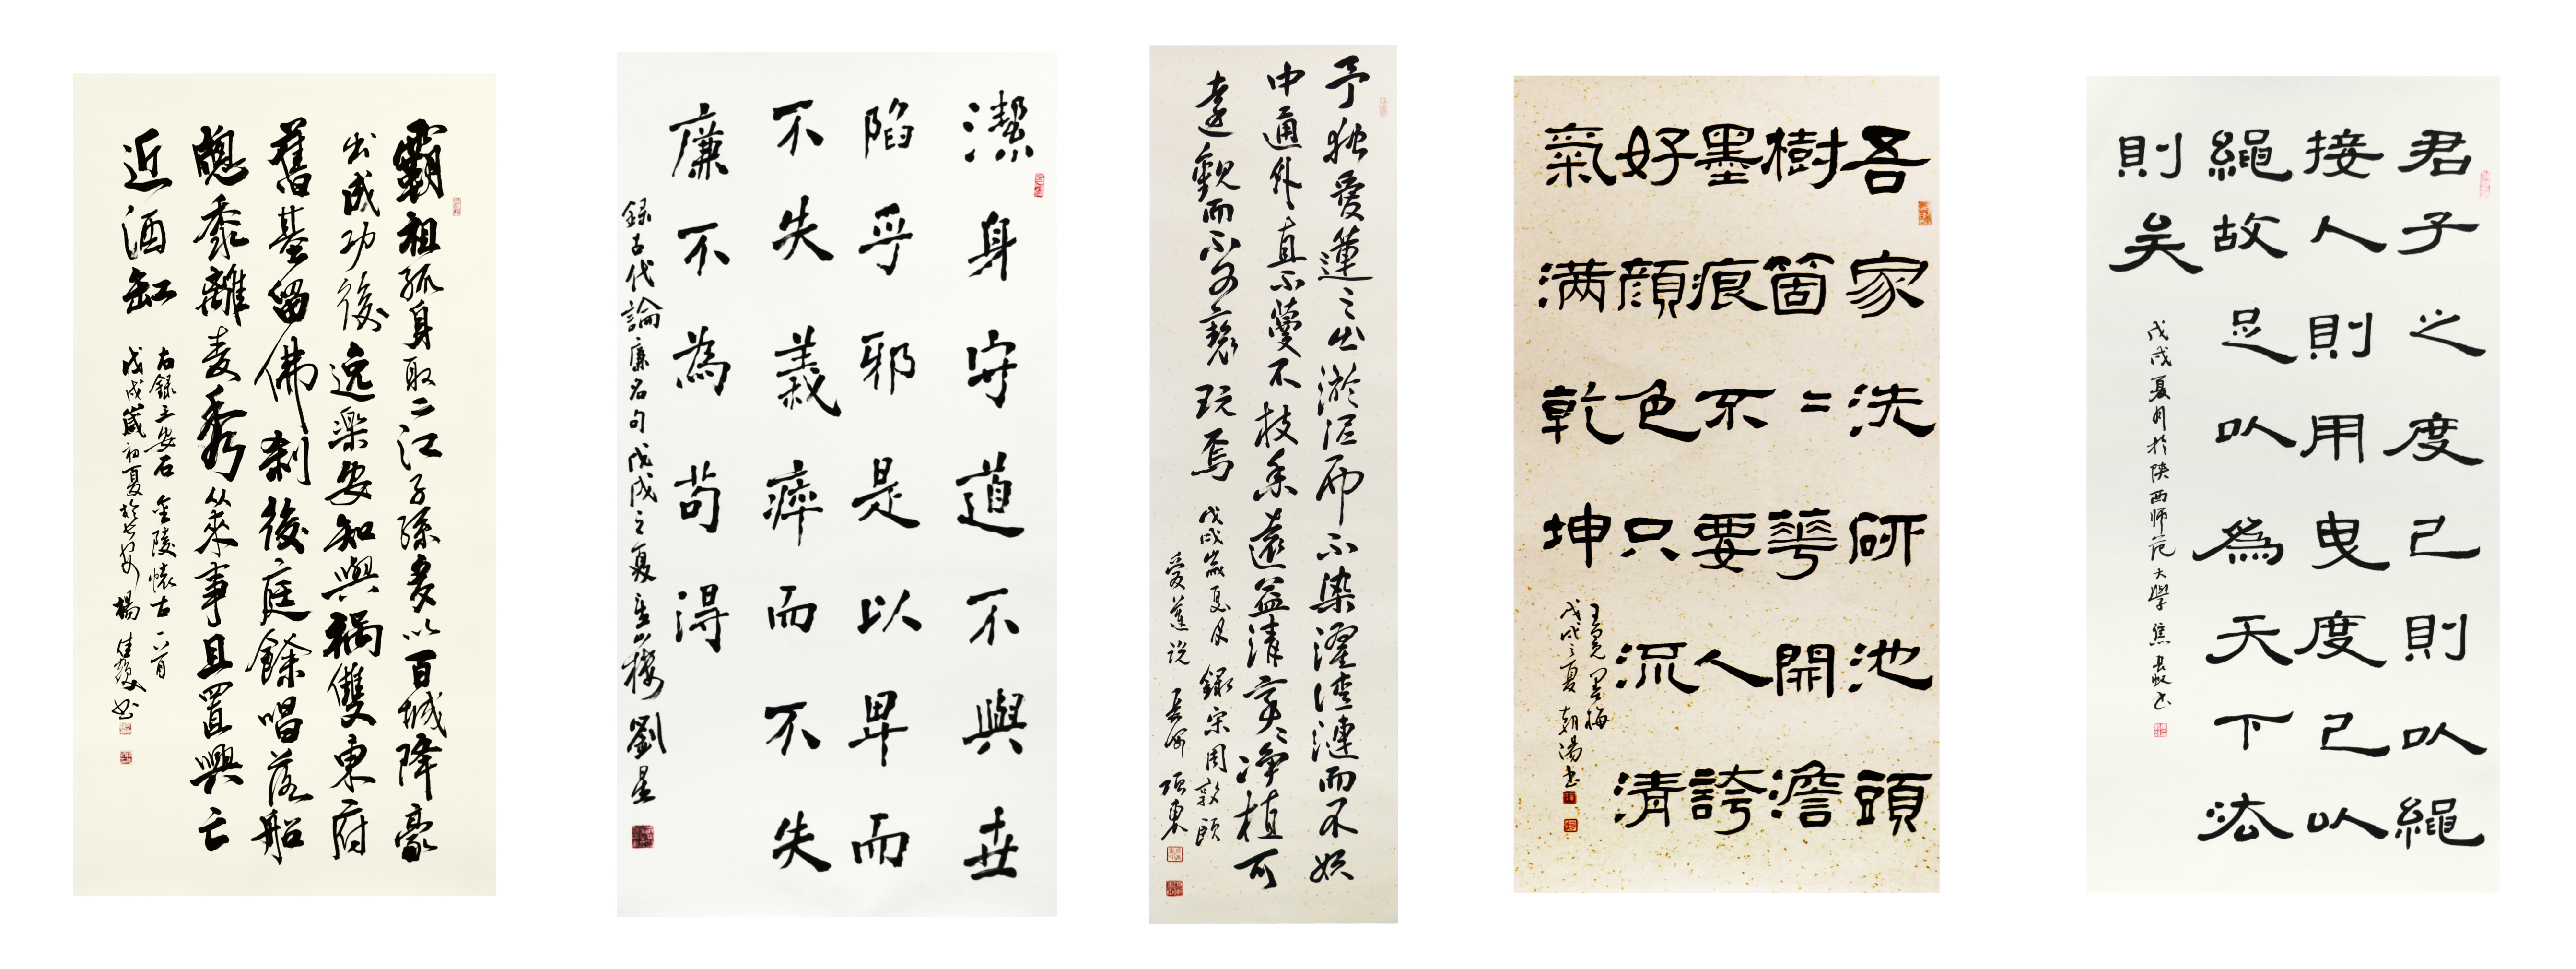 霸祖孤身取二江子孫多以百城降豪
出成功後逸樂安知與禍雙東府
舊基留佛剎後庭餘唱落船
牕黍離麥秀从來事且置興亡
近酒缸
右錄王安石金陵懷古一首
戊戌歲初夏於長安楊書
潔身守道不與世
陷乎邪是以卑而
不失義瘁而不失
廉不為苟得
録古代論廉名句戊戌之夏重山樓劉星
予独愛蓮之出淤泥而不染濯清漣而不妖
中通外直不蔓不枝香遠益清亭〻淨植可
遠觀而不可褻玩焉
戊戌歲夏月錄宋周敦頤
愛蓮說 長安 項東
吾家洗研池頭
樹箇〻華開澹
墨痕不要人誇
好顏色只流清
氣满乾坤
王冕墨梅
戊戌之夏朝陽書
君子之度己則以繩
接人則用曳度己以
繩故足以為天下法
則矣
戊戌夏月於陝西师范大學焦書